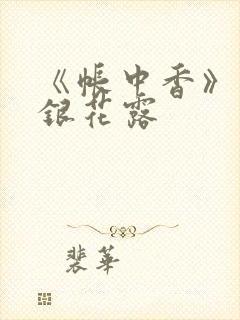 《帐中香》
银花露
裴华